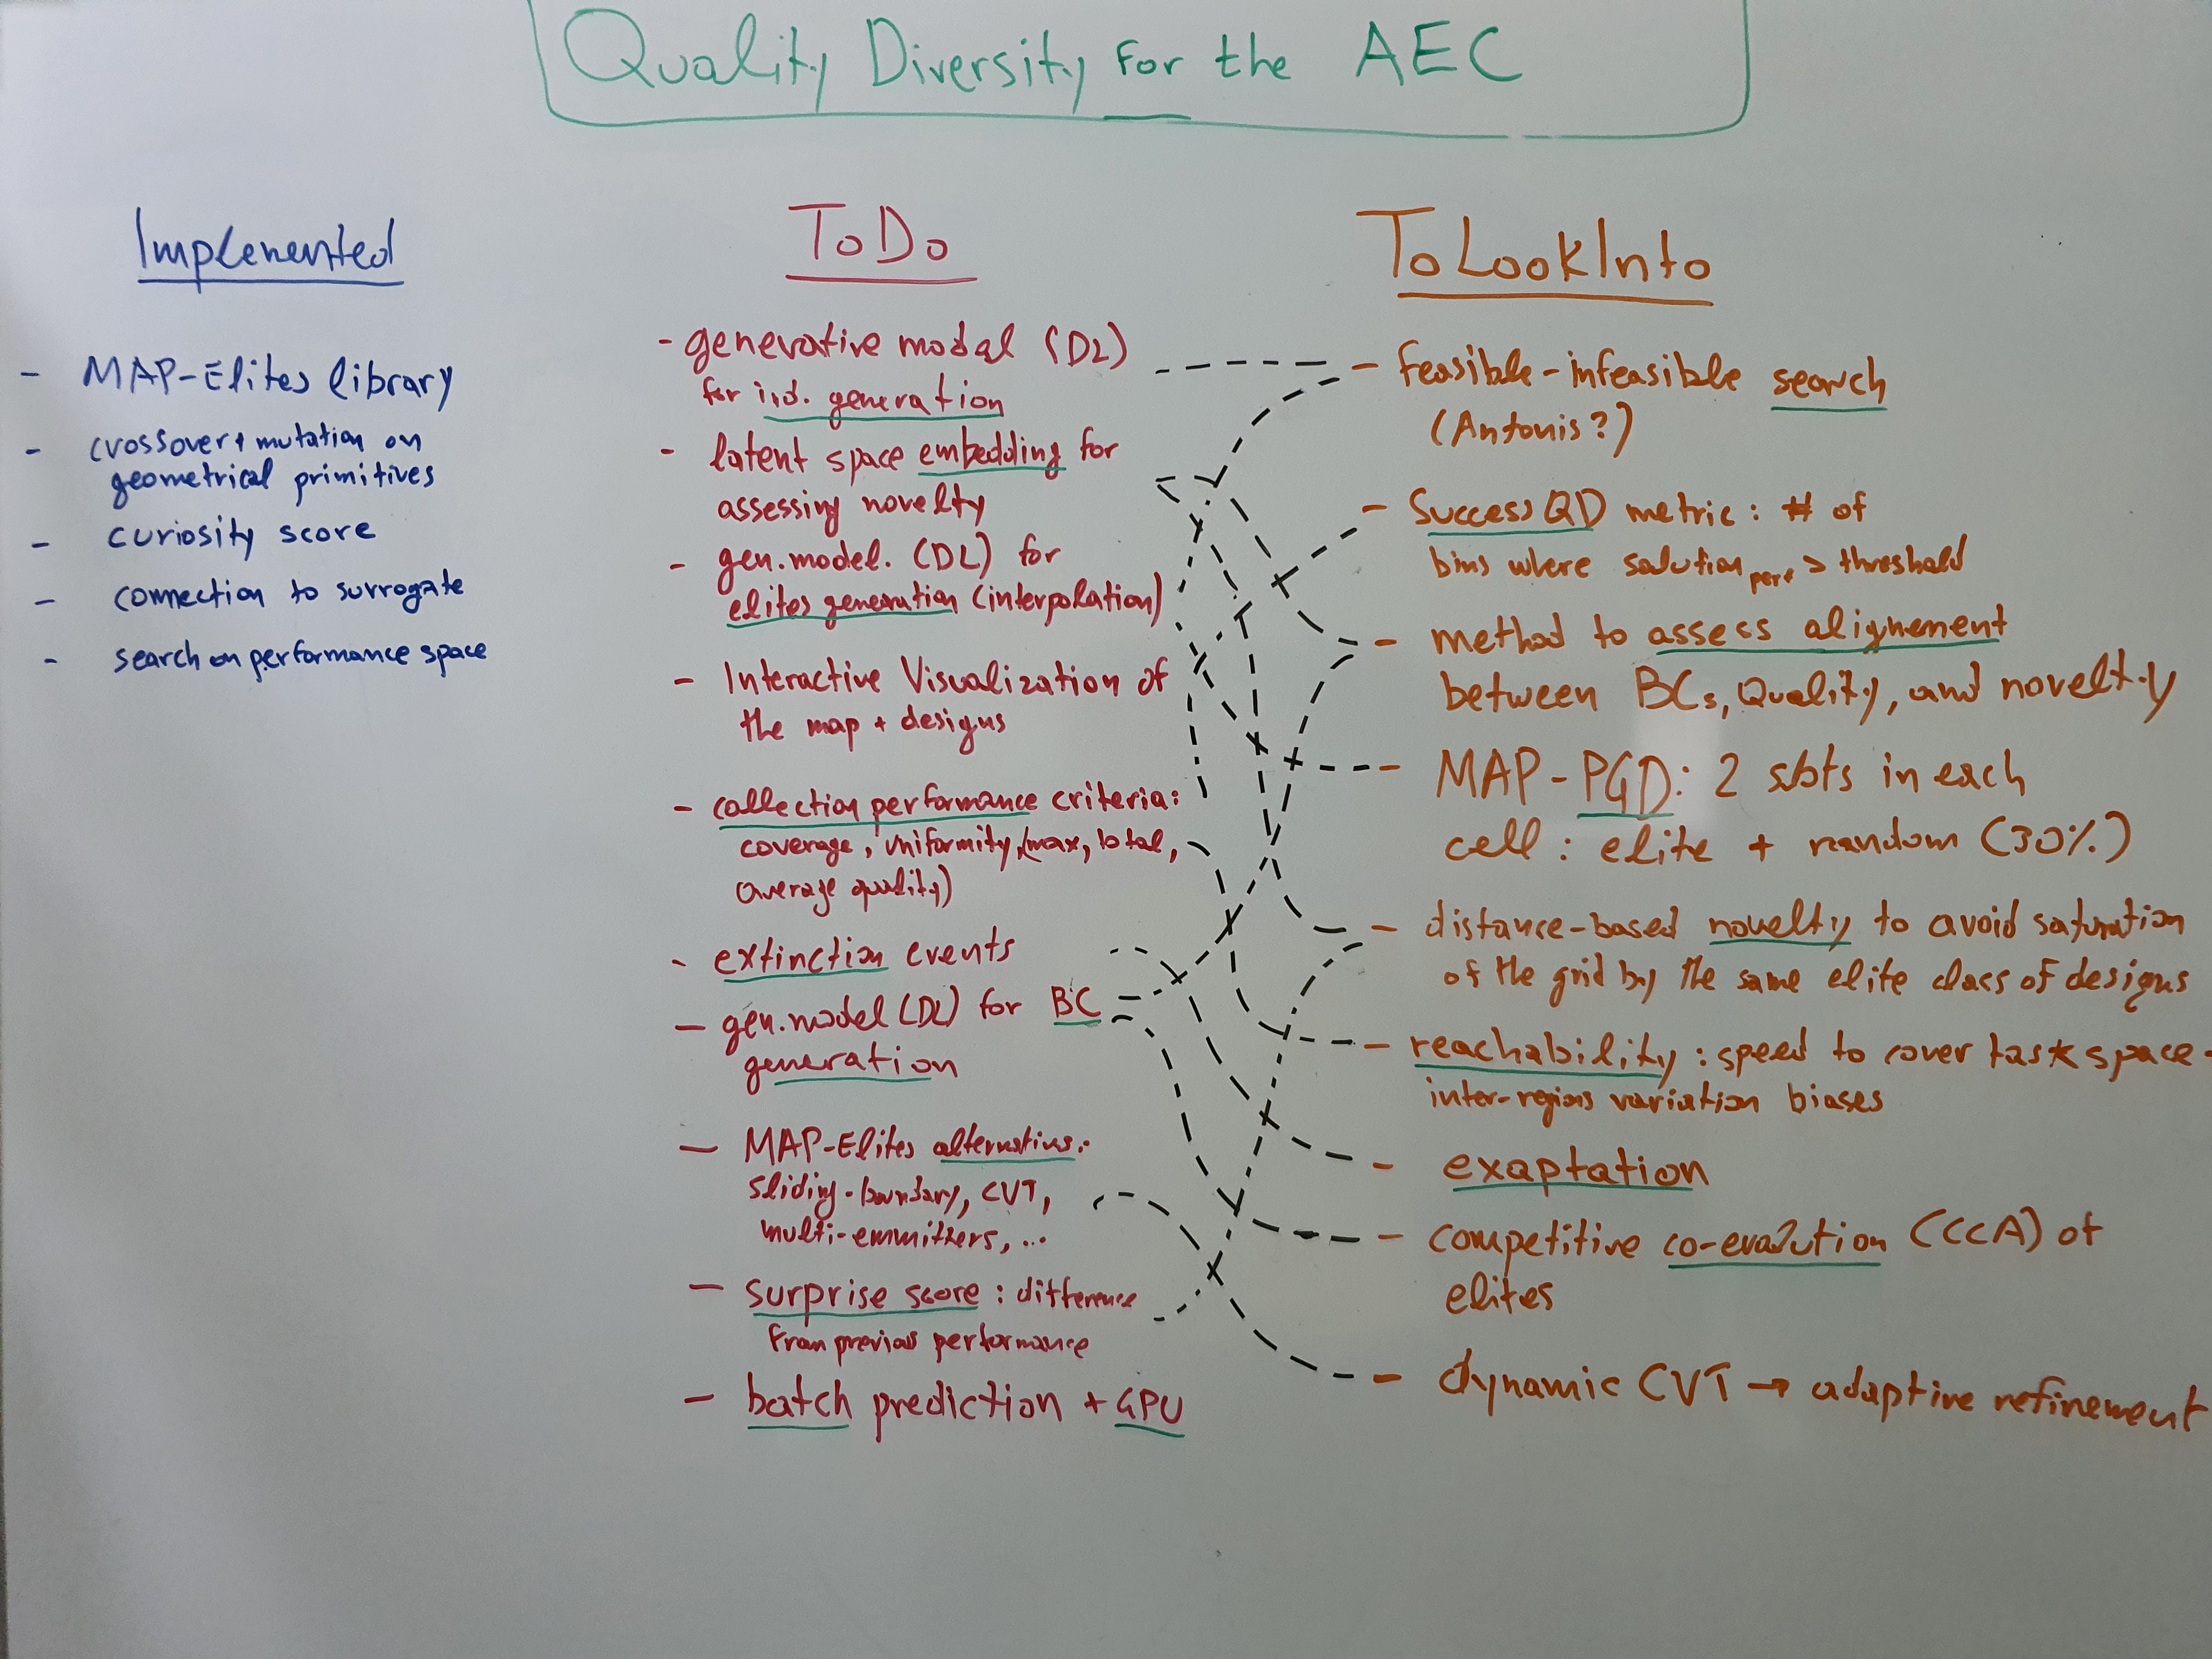 Quality Diversity for the AEC
Implemented
- MAP-Elites library
- crossover + mutation on
geometrical primitives
- curiosity score
- connection to surrogate
- search on performance space
ToDo
- generative modal (DL)
for ind. generation
- latent space embedding for
assessing novelty
- gen. model. (DL) for
elites generation (interpolation)
- Interactive Visualization of
the map + designs
- collection performance criteria:
coverage, uniformity, (max, total,
average quality)
- extinction events
- gen. model (DL) for BC
generation
- MAP-Elites alternatives:
sliding-boundary, CVT,
multi-emmitters, ...
- surprise score : difference
from previous performance
- batch prediction + GPU
ToLookInto
- feasible-infeasible search
(Antonis?)
- Success QD metric: # of
bins where solution perf > threshold
- method to assess alignement
between BCs, Quality, and novelty
- MAP-PGD: 2 slots in each
cell : elite + random (30%)
- distance-based novelty to avoid saturation
of the grid by the same elite class of designs
- reachability : speed to cover task space -
inter-regions variation biases
- exaptation
- competitive co-evolution (CCA) of
elites
- dynamic CVT → adaptive refinement